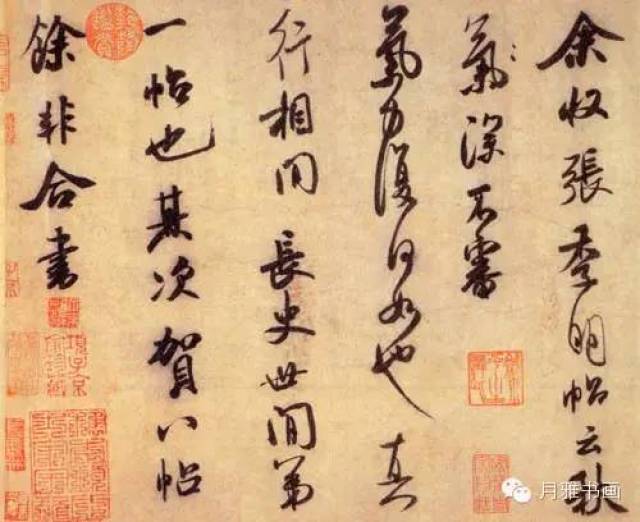 余收張季明帖云秋
氣深不審
氣力復何如也真
行相間長史世間第
一帖也其次賀八帖
餘非合書
月雅书画